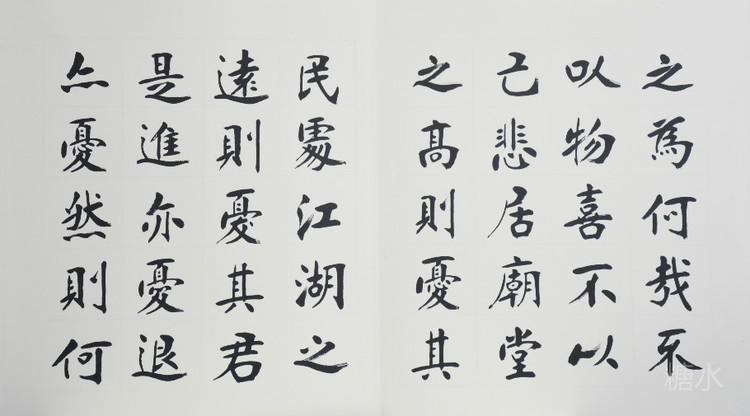 之為何哉不
以物喜不以
己悲居廟堂
之高則憂其
民處江湖之
遠則憂其君
是進亦憂退
亦憂然則何
糖水